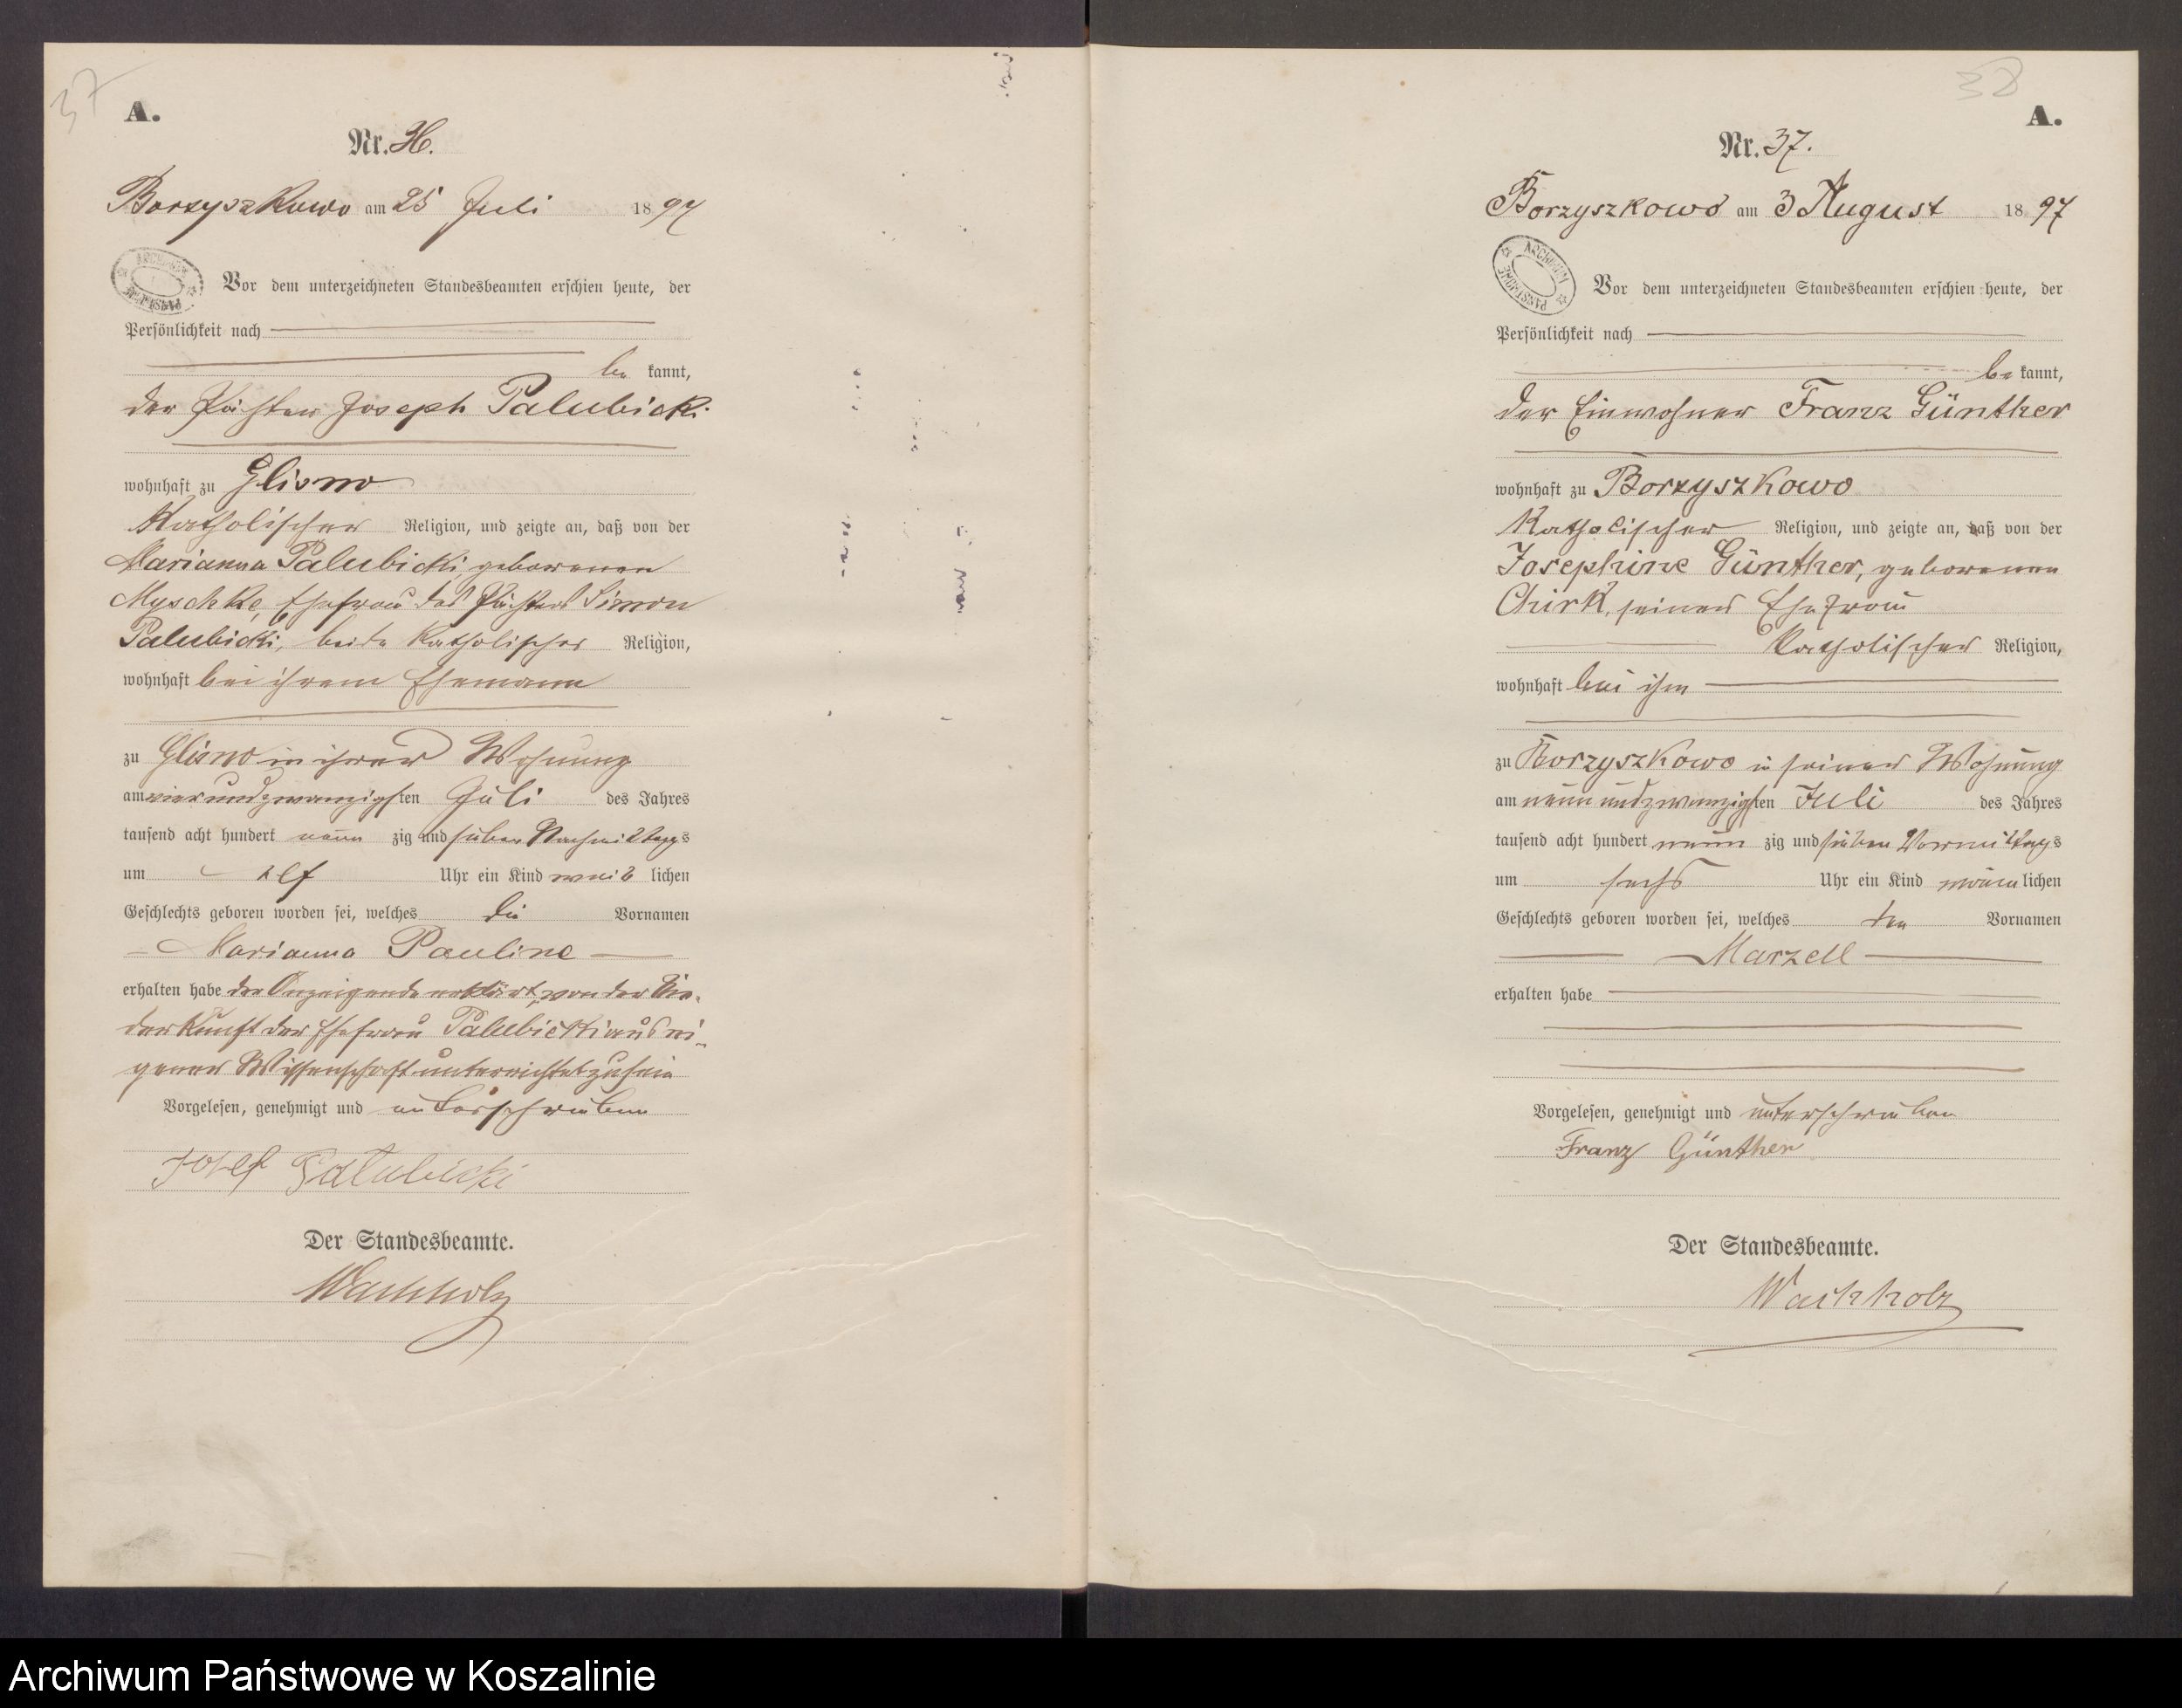 37
A.
Nr. 36.
Borzyszkowo am 25 Juli 1897
ARCHIWUM PAŃSTWOWE
Vor dem unterzeichneten Standesbeamten erschien heute, der
Persönlichkeit nach
be kannt,
der Pächter Joseph Palubicki
wohnhaft zu Glisno
Katholischer Religion, und zeigte an, daß von der
Marianna Palubicki, geborenen
Myschke, Ehefrau des Pächters Simon
Palubicki, beide Katholischer Religion,
wohnhaft bei ihrem Ehemann
zu Glisno in ihrer Wohnung
am vierundzwanzigsten Juli des Jahres
tausend acht hundert neun zig und sieben Nachmittags
um elf Uhr ein Kind weib lichen
Geschlechts geboren worden sei, welches die Vornamen
Marianna Pauline
erhalten habe der Anzeigende erklärt, von der Nie-
derkunft der Ehefrau Palubicki aus ei-
gener Wissenschaft unterrichtet zu sein
Vorgelesen, genehmigt und unterschrieben
Josef Palubicki
Der Standesbeamte.
Wachholz
38
A.
Nr. 37.
Borzyszkowo am 3 August 1897
ARCHIWUM PAŃSTWOWE
Vor dem unterzeichneten Standesbeamten erschien heute, der
Persönlichkeit nach
be kannt,
der Einwohner Franz Günther
wohnhaft zu Borzyszkowo
Katholischer Religion, und zeigte an, daß von der
Josephine Günther, geborenen
Chirk, seiner Ehefrau
Katholischer Religion,
wohnhaft bei ihm
zu Borzyszkowo in seiner Wohnung
am neun und zwanzigsten Juli des Jahres
tausend acht hundert neun zig und sieben Vormittags
um sechs Uhr ein Kind männ lichen
Geschlechts geboren worden sei, welches den Vornamen
Marzell
erhalten habe
Vorgelesen, genehmigt und unterschrieben
Franz Günther
Der Standesbeamte.
Wachholz
Archiwum Państwowe w Koszalinie